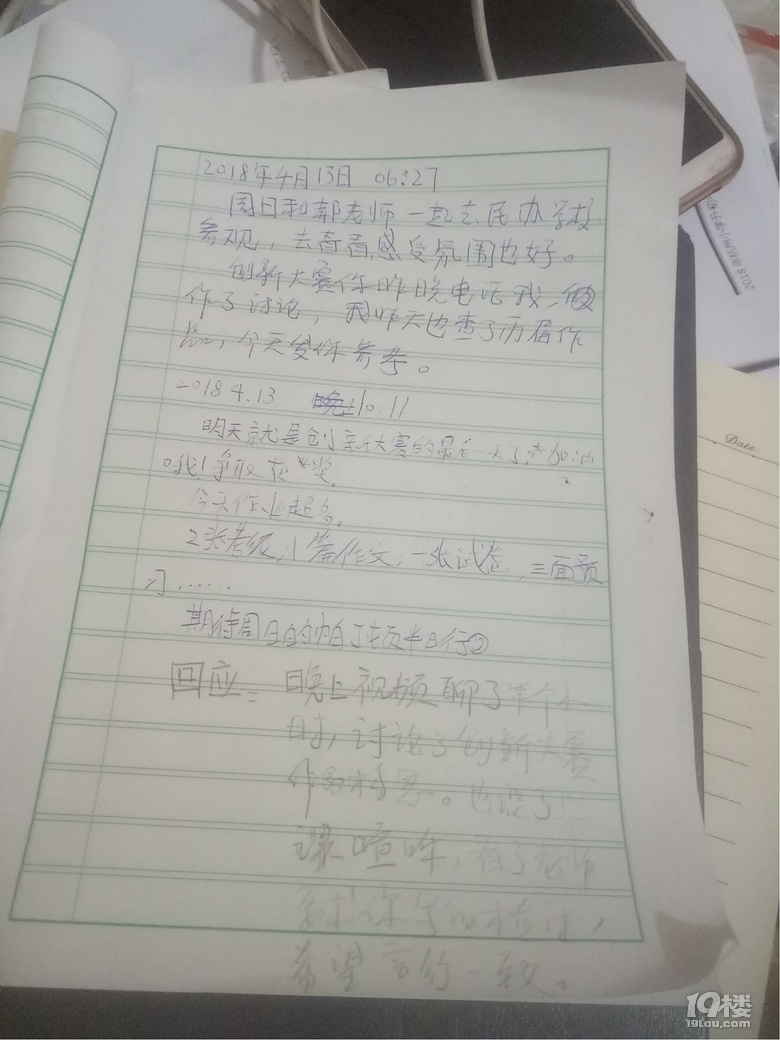 2018年4月13日 06:27
周日和郭老师一起去民办学校
参观，去看看感受氛围也好。
创新大赛你昨晚电话我，
作了讨论，我昨天也查了历届作
品，今天发你参考。
2018 4.13 晚上10.11
明天就是创新大赛的最后一天了，加油
哦！争取获*奖。
今天作业超多。
2张卷，1篇作文，一张试卷，三面预
习……
期待周日的帕丁顿半日行
回应：晚上视频聊了半个小
时，讨论了创新大赛
作品构思。也谈了上
课喧哗，看了老师
要求你写的检讨，
希望言行一致。
Date:
19楼
19lou.com